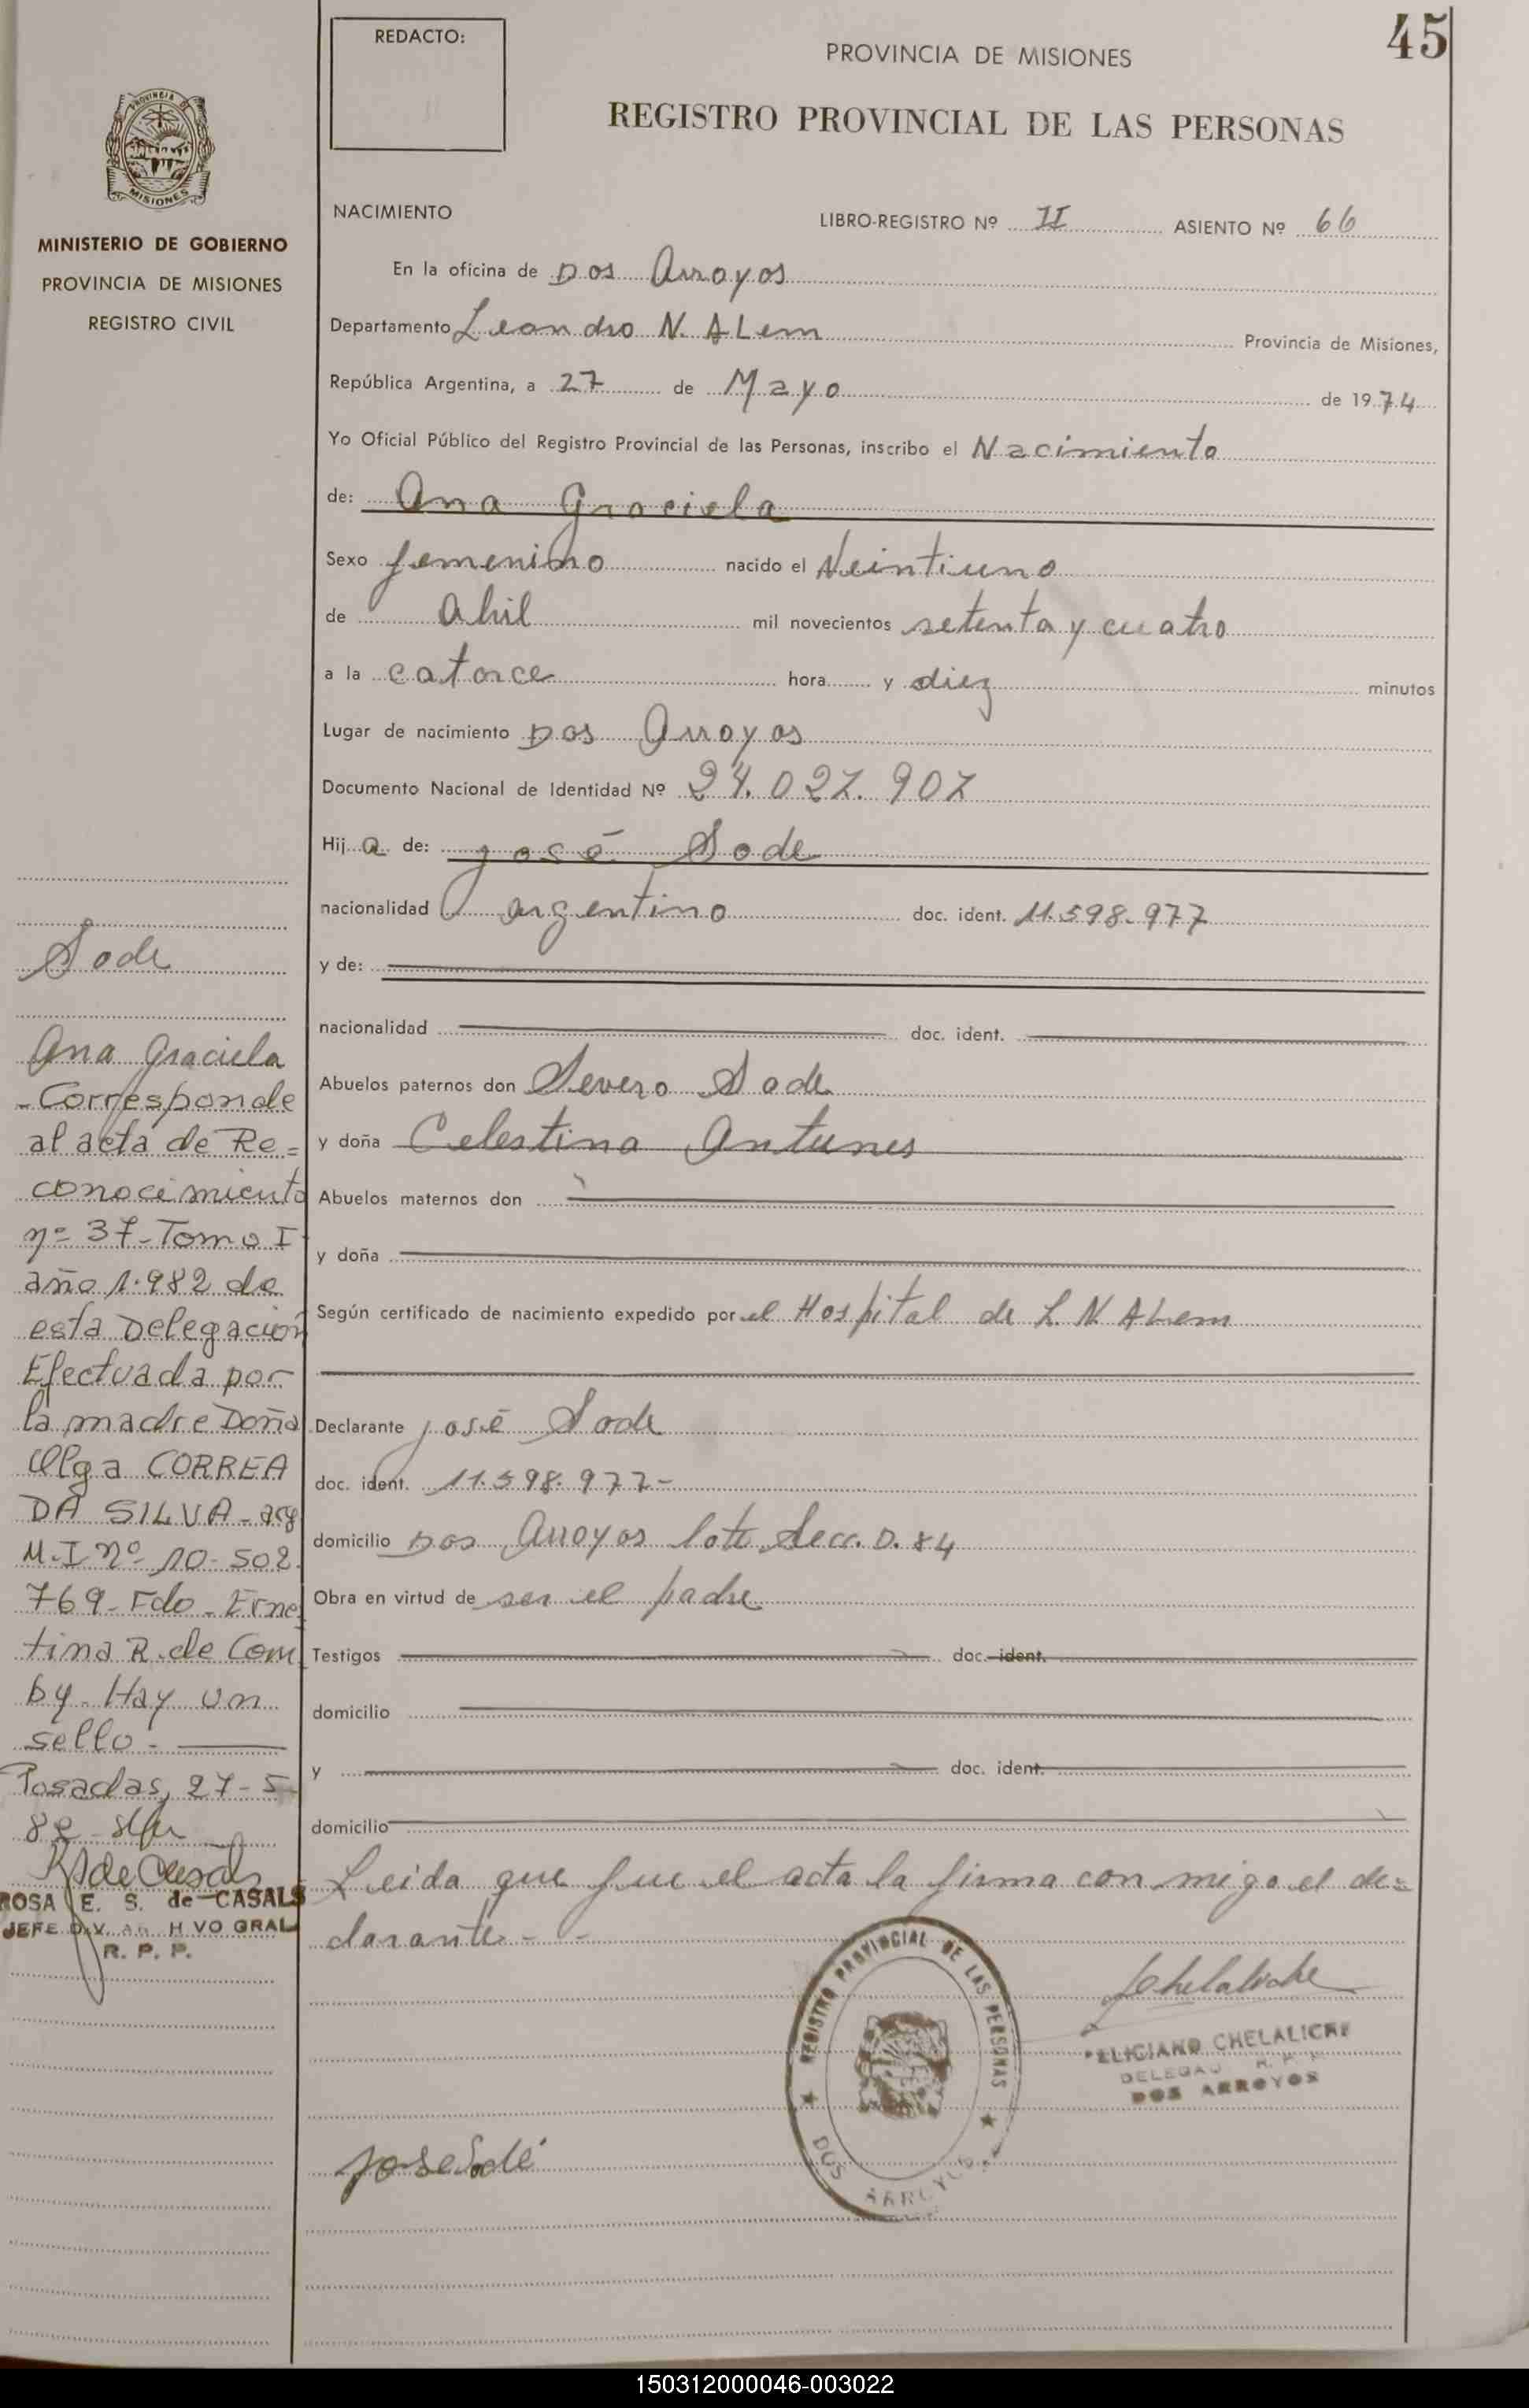 45
REDACTO:
PROVINCIA DE MISIONES
REGISTRO PROVINCIAL DE LAS PERSONAS
PROVINCIA DE
MISIONES
MINISTERIO DE GOBIERNO
PROVINCIA DE MISIONES
REGISTRO CIVIL
NACIMIENTO
LIBRO-REGISTRO Nº II ASIENTO Nº 66
En la oficina de Dos Arroyos
Departamento Leandro N. ALem Provincia de Misiones,
República Argentina, a 27 de Mayo de 1974
Yo Oficial Público del Registro Provincial de las Personas, inscribo el Nacimiento
de: Ana Graciela
Sexo femenino nacido el Veintiuno
de Abril mil novecientos setenta y cuatro
a la catorce hora y diez minutos
Lugar de nacimiento Dos Arroyos
Documento Nacional de Identidad Nº 24.027.907
Hija de: José Sode
nacionalidad argentino doc. ident. 11.598.977
y de:
nacionalidad doc. ident.
Abuelos paternos don Severo Sode
y doña Celestina Antunes
Abuelos maternos don
y doña
Según certificado de nacimiento expedido por el Hospital de L. N. ALem
Declarante José Sode
doc. ident. 11.598.977-
domicilio Dos Arroyos lote Secc. D. 84
Obra en virtud de ser el padre
Testigos doc. ident.
domicilio
y doc. ident.
domicilio
Leida que fue el acta la firma con migo el de=
clarante - -
Sode
Ana Graciela
- Corresponde
al acta de Re=
conocimiento
nº 37- Tomo I
año 1.982 de
esta Delegación
Efectuada por
la madre Doña
Olga CORREA
DA SILVA - arg
M.I nº 10-502.
769- Fdo - Erne
tina R. de Com
by. Hay un
sello.
Posadas, 27-5
82
ROSA E. S. de CASALS
JEFE DIV. ARCHIVO GRAL
R. P. P.
REGISTRO PROVINCIAL DE LAS PERSONAS
DOS ARROYOS
Chelaliche
FELICIANO CHELALICHE
DELEGADO R. P. P.
DOS ARROYOS
Jose Sode
150312000046-003022